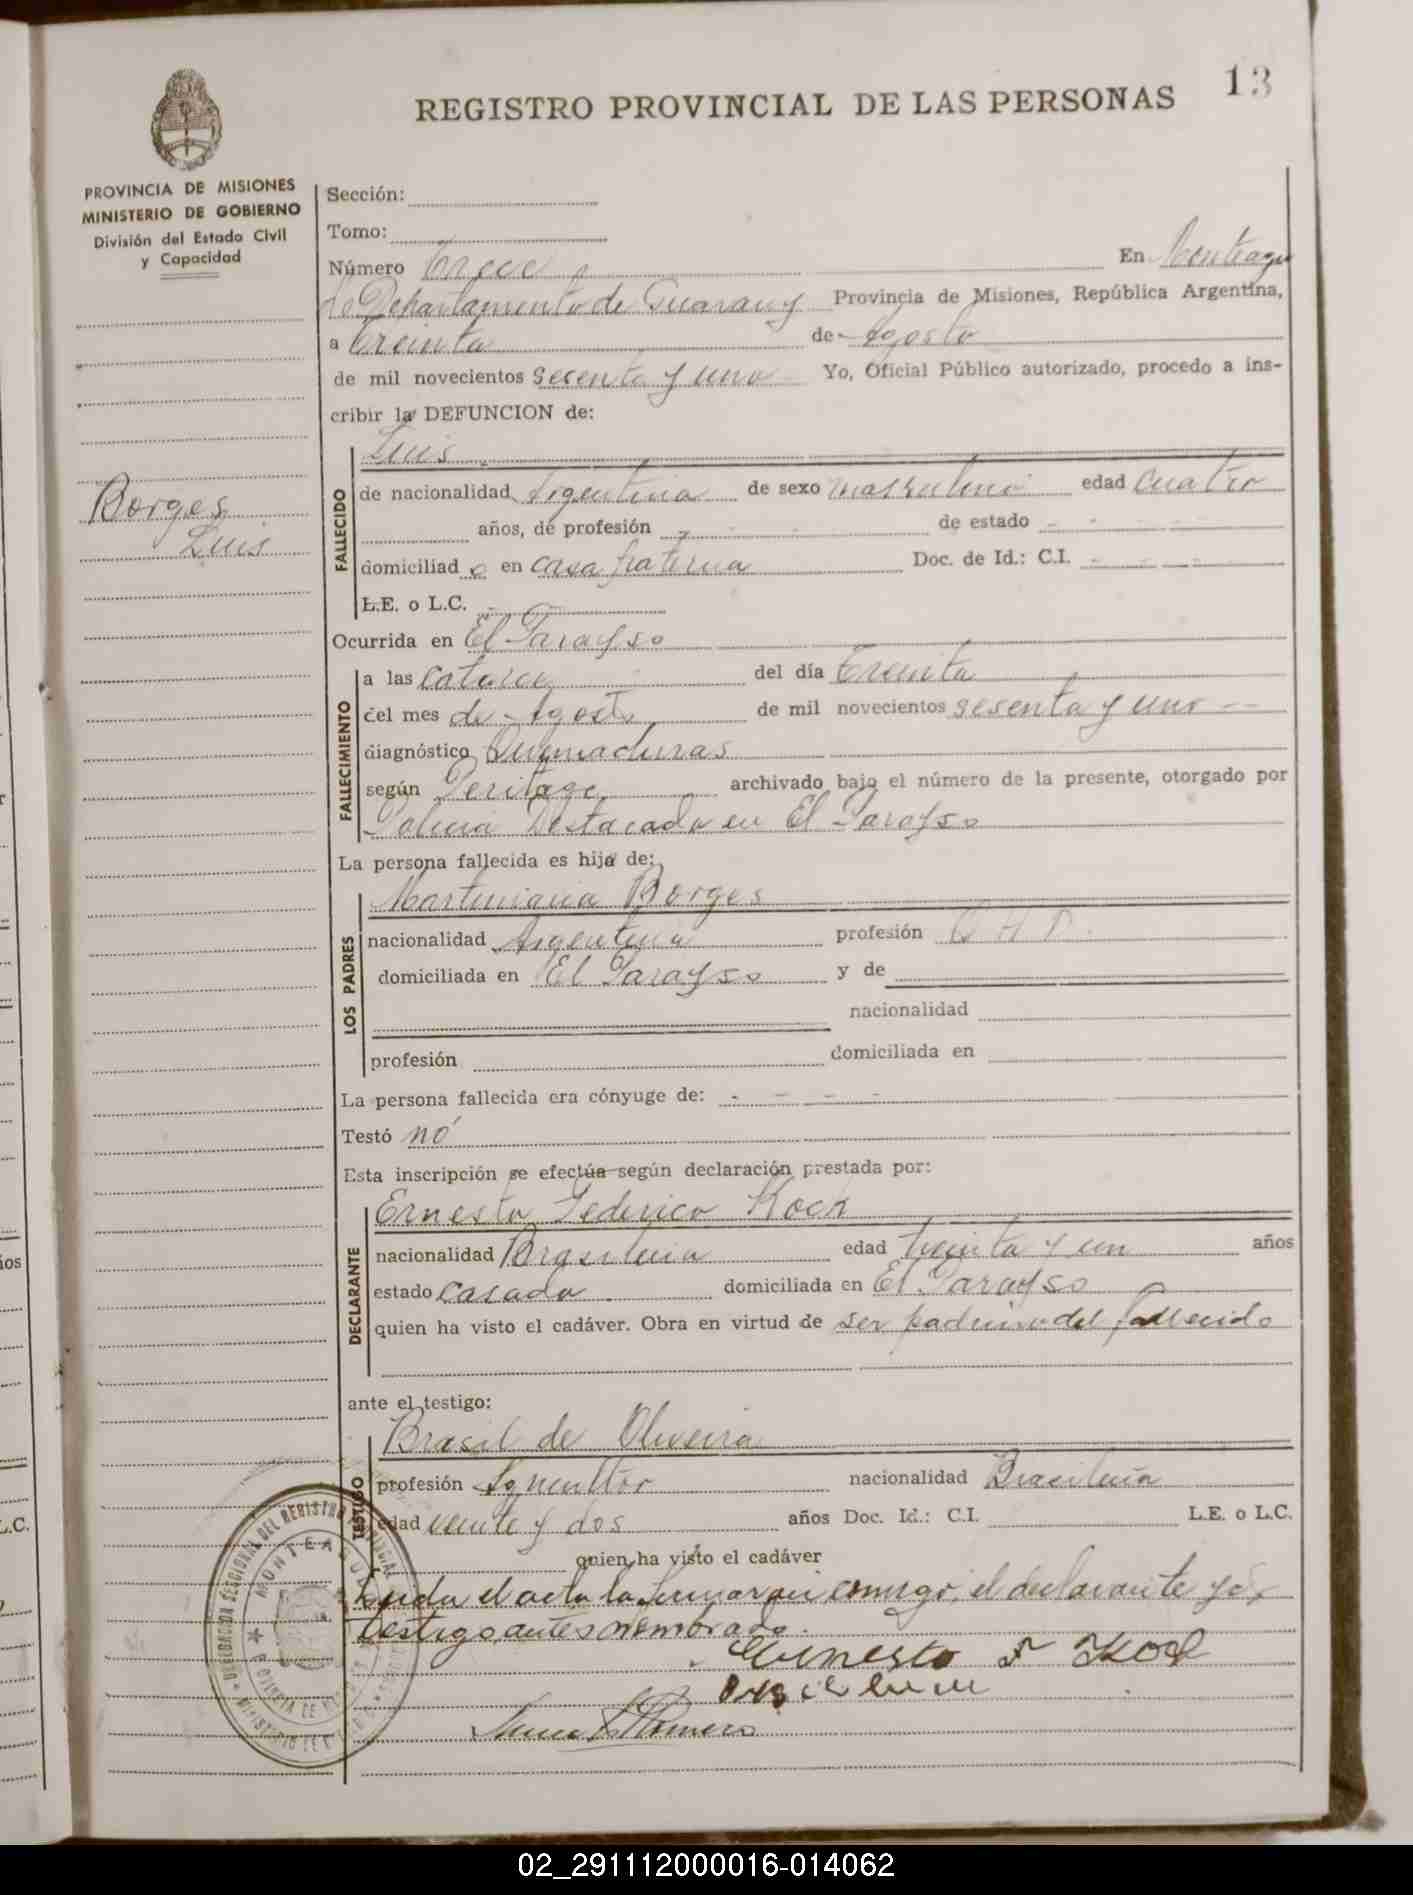 13
REGISTRO PROVINCIAL DE LAS PERSONAS
PROVINCIA DE MISIONES
MINISTERIO DE GOBIERNO
División del Estado Civil
y Capacidad
Sección:
Tomo:
Número Trece En Monteagu
do Departamento de Guarany Provincia de Misiones, República Argentina,
a Treinta de Agosto
de mil novecientos sesenta y uno Yo, Oficial Público autorizado, procedo a ins-
cribir la DEFUNCION de:
Borges
Luis
FALLECIDO
Luis
de nacionalidad Argentina de sexo masculino edad cuatro
años, de profesión - de estado - - - -
domiciliado en casa Doc. de Id.: C.I. - - - -
L.E. o L.C. -
Ocurrida en El Parayso
FALLECIMIENTO
a las catorce del día Treinta
del mes de Agosto de mil novecientos sesenta y uno --
diagnóstico Quemaduras
según Peritage archivado bajo el número de la presente, otorgado por
Policia Destacada en El Parayso
La persona fallecida es hijo de:
LOS PADRES
Martiniana Borges
nacionalidad Argentina profesión Q.H.D.
domiciliada en El Parayso y de
nacionalidad
profesión domiciliada en
La persona fallecida era cónyuge de: - - - -
Testó nó
Esta inscripción se efectúa según declaración prestada por:
DECLARANTE
Ernesto Federico Koch
nacionalidad Brasileria edad treinta y un años
estado Casado domiciliada en El Parayso
quien ha visto el cadáver. Obra en virtud de ser padrino del fallecido
ante el testigo:
TESTIGO
Brasil de Oliveira
profesión Agricultor nacionalidad Brasileria
edad veinte y dos años Doc. Id.: C.I. L.E. o L.C.
quien ha visto el cadáver
Leida el acta la firmaran conmigo, el declarante y el
testigo antes nombrado.
Ernesto F Koch
Romero
DELEGACION SECCIONAL DEL REGISTRO PROVINCIAL
MONTEAGUDO
02_291112000016-014062